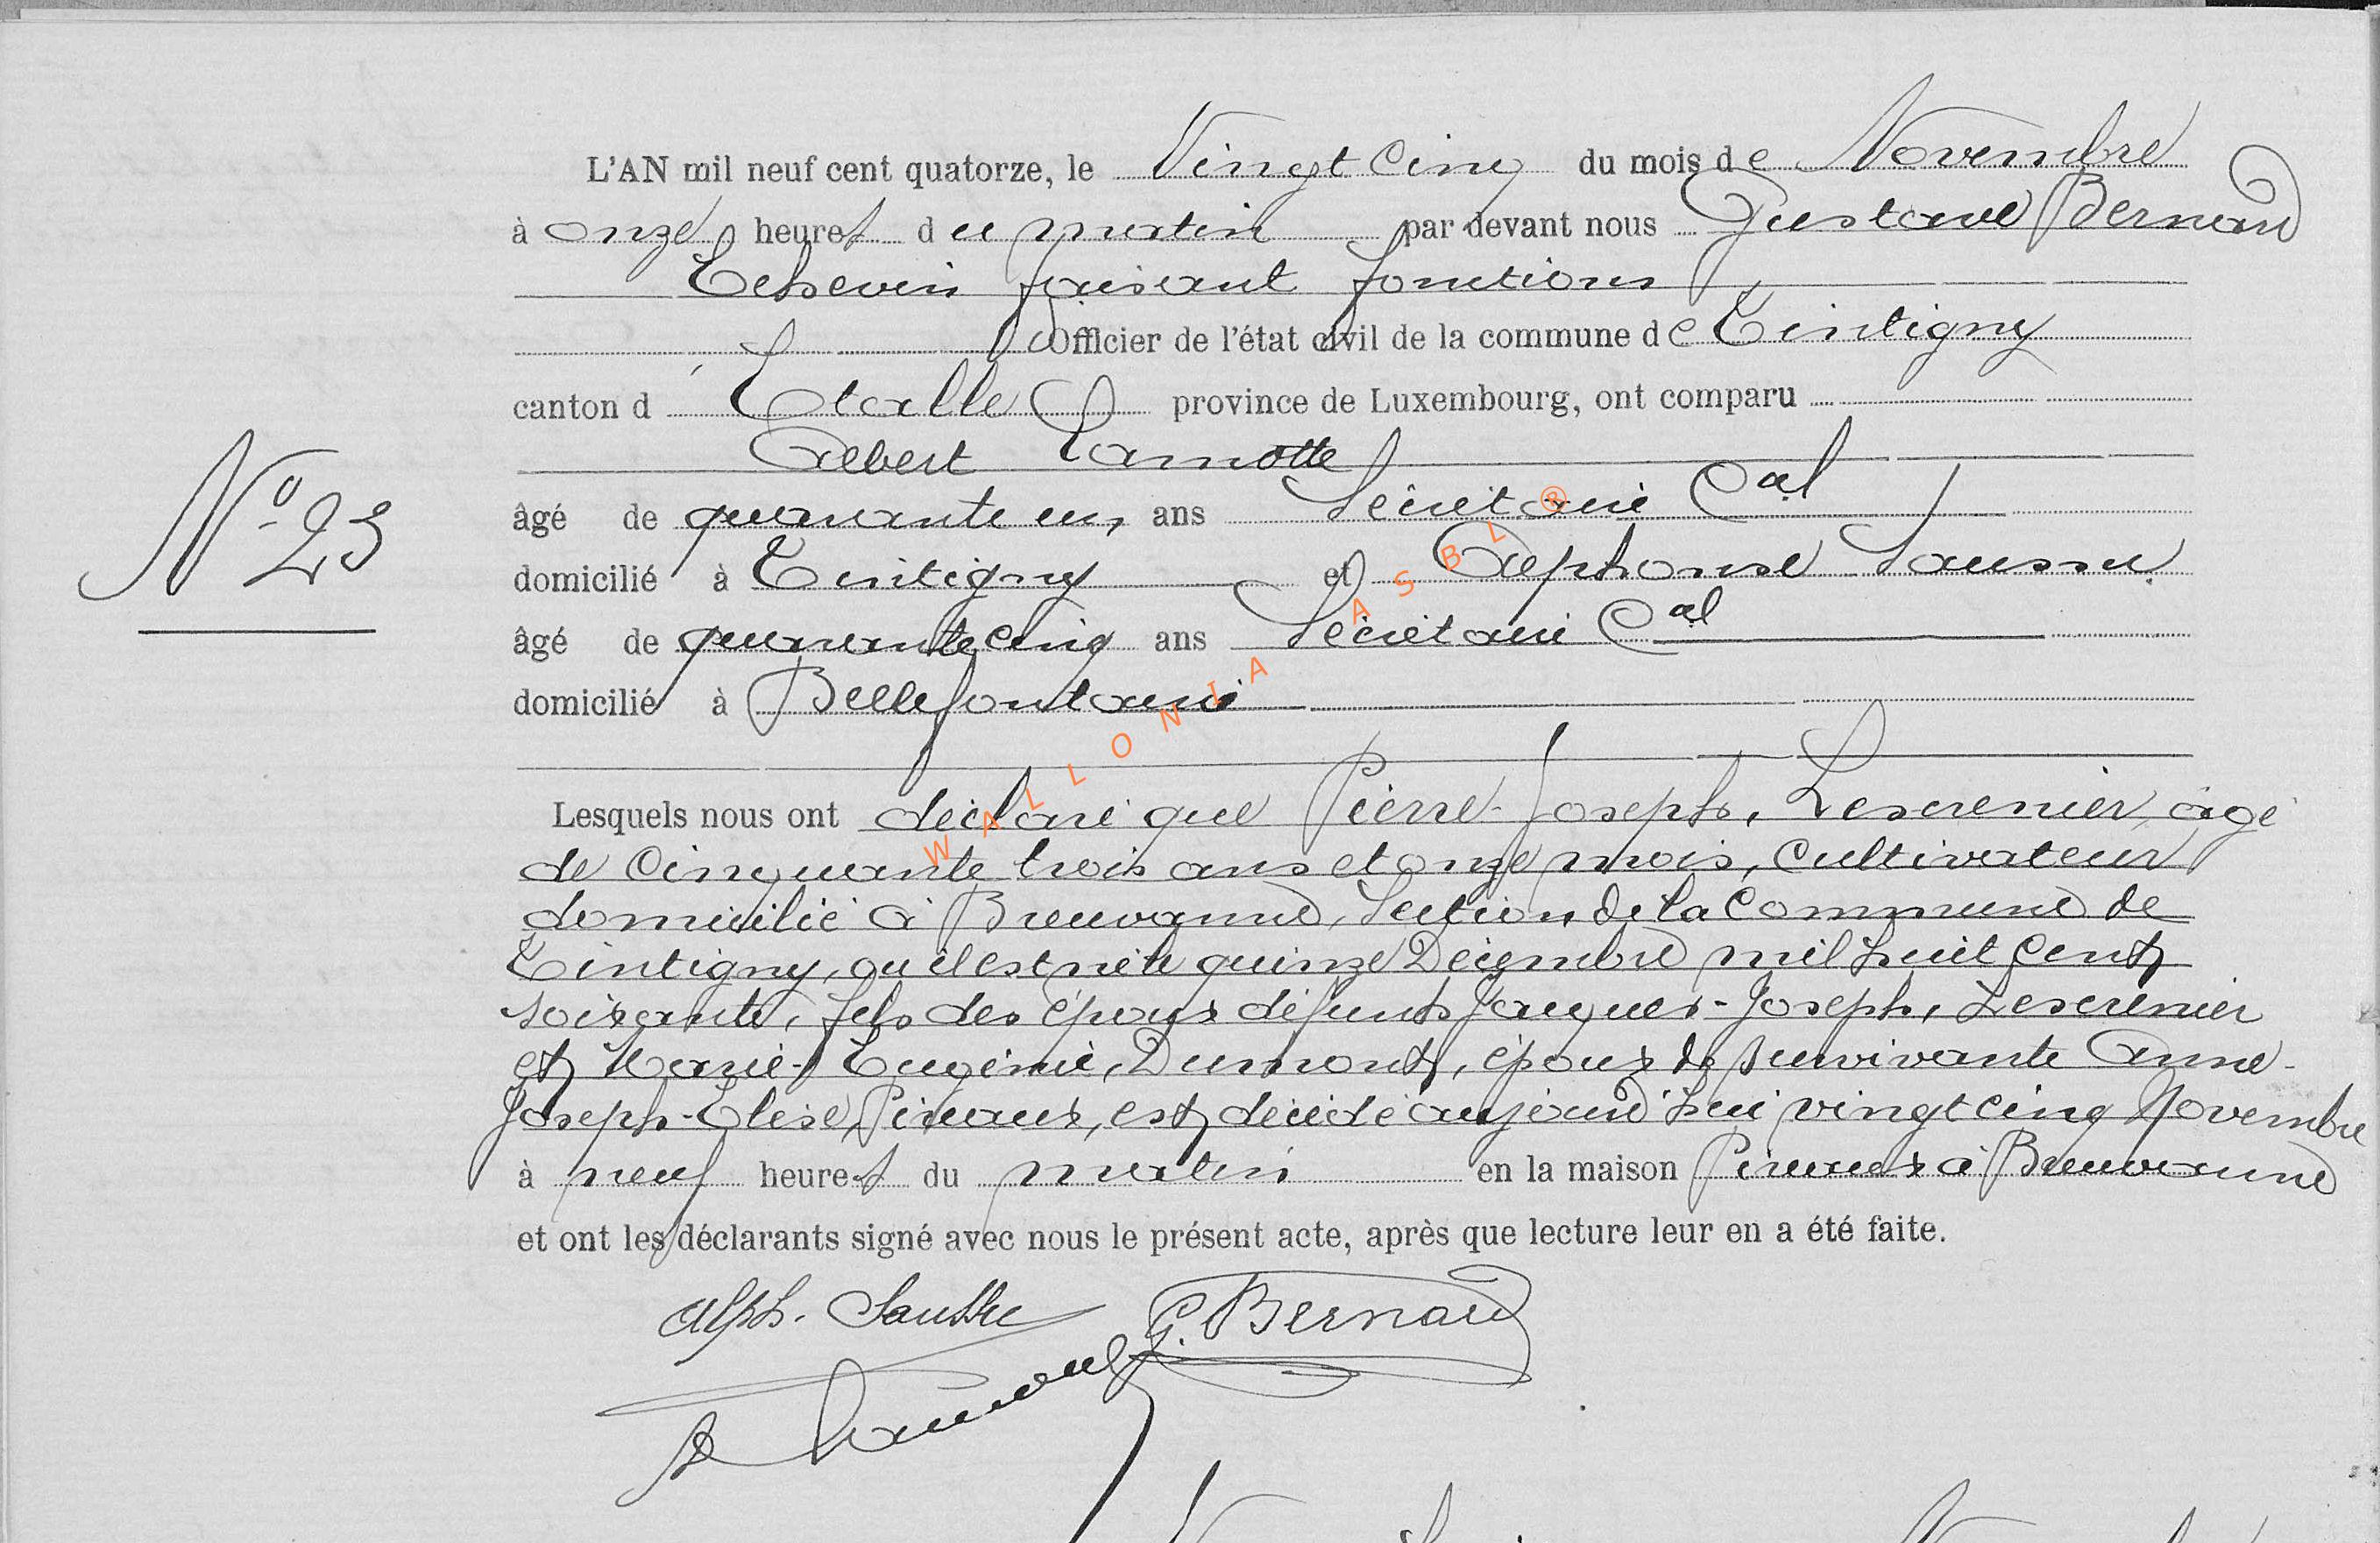 L'AN mil neuf cent quatorze, le Vingt Cinq du mois de Novembre
à onze heures du matin par devant nous Gustave Bernard
Echevin faisant fonctions
Officier de l'état civil de la commune de Tintigny
canton d Etalle province de Luxembourg, ont comparu
Albert Lamotte
âgé de quarante un ans Secrétaire Cal
domicilié à Tintigny et Alphonse Saussu
N° 23
âgé de quarante cinq ans Secrétaire Cal
domicilié à Bellefontaine
Lesquels nous ont déclaré que Pierre-Joseph, Lescrenier, âgé
de Cinquante trois ans et onze mois, Cultivateur
domicilié à Breuvanne, Section de la Commune de
Tintigny, où il est né le quinze Décembre mil huit cent
soixante, fils des époux défunts Jacques-Joseph, Lescrenier
et Marie-Eugénie, Dumont, époux de survivante Anne-
Joseph-Elise, Piraux, est décédé aujourd'hui vingt cinq Novembre
à neuf heures du matin en la maison Piraux à Breuvanne
et ont les déclarants signé avec nous le présent acte, après que lecture leur en a été faite.
Alph. Saussu G. Bernard
A Lamotte
WALLONIA ASBL ®